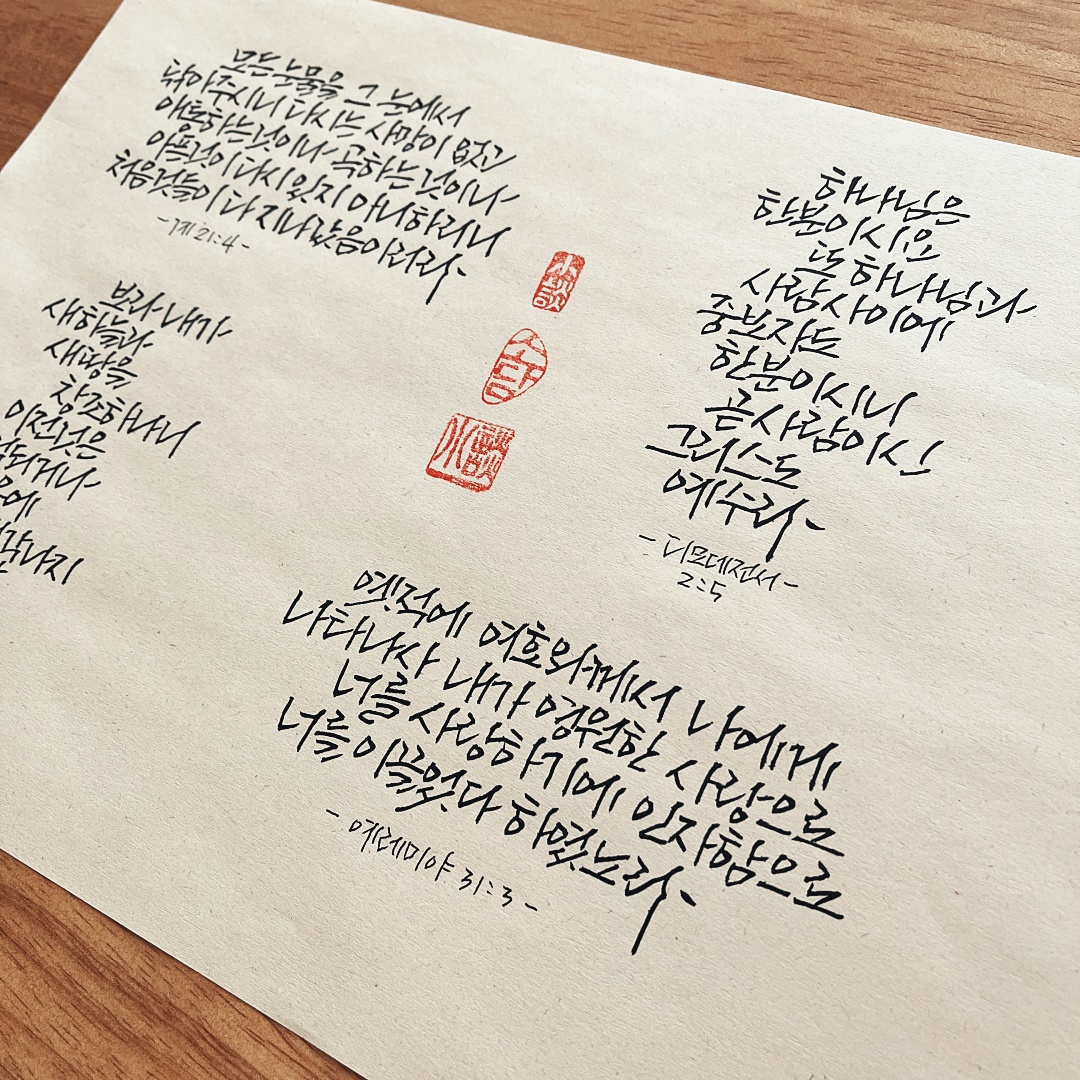 모든 눈물을 그 눈에서
닦아주시니 다시는 사망이 없고
애통하는것이나 곡하는 것이나
아픈것이 다시 있지 아니하리니
처음것들이 다 지나갔음이러라
-계 21:4-
小談
소담
小談
하나님은
한분이시요
또 하나님과
사람 사이에
중보자도
한분이시니
곧 사람이신
그리스도
예수라
-디모데전서-
2:5
보라 내가
새하늘과
새땅을
창조하나니
이전것은
되거나
생각나지
옛적에 여호와께서 나에게
나타나사 내가 영원한 사랑으로
너를 사랑하기에 인자함으로
너를 이끌었다 하였노라
- 예레미야 31:3 -